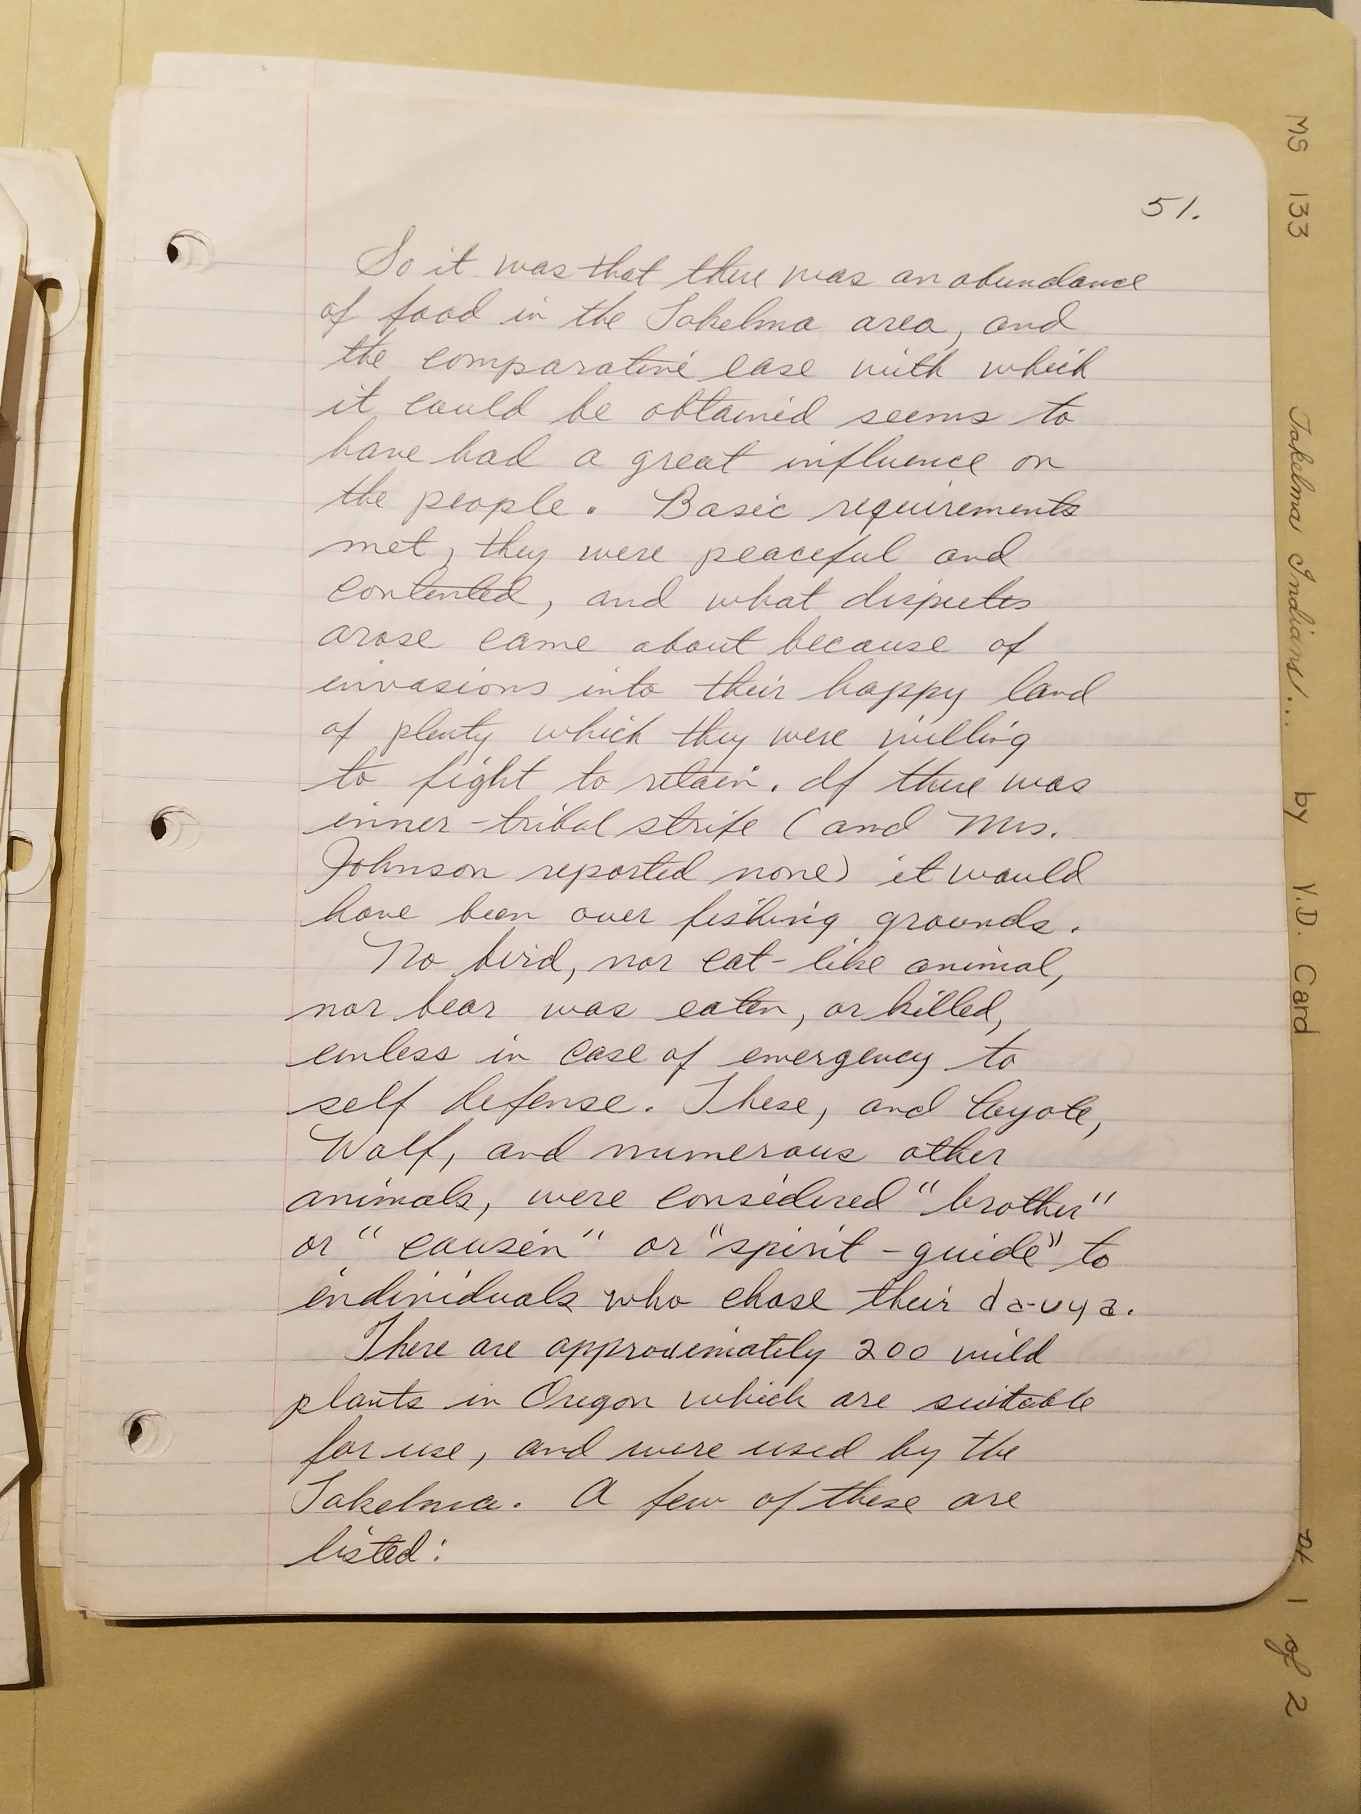 51.
So it was that there was an abundance
of food in the Takelma area, and
the comparative ease with which
it could be obtained seems to
have had a great influence on
the people. Basic requirements
met, they were peaceful and
contented, and what disputes
arose came about because of
invasions into their happy land
of plenty which they were willing
to fight to retain. If there was
inner-tribal strife (and Mrs.
Johnson reported none) it would
have been over fishing grounds.
No bird, nor cat-like animal,
nor bear was eaten, or killed,
unless in case of emergency to
self defense. These, and Coyote,
Wolf, and numerous other
animals, were considered "brother"
or "cousin" or "spirit-guide" to
individuals who chose their da-uya.
There are approximately 200 wild
plants in Oregon which are suitable
for use, and were used by the
Takelma. A few of these are
listed:
MS 133 Takelma Indians... by V.D. Card pt 1 of 2